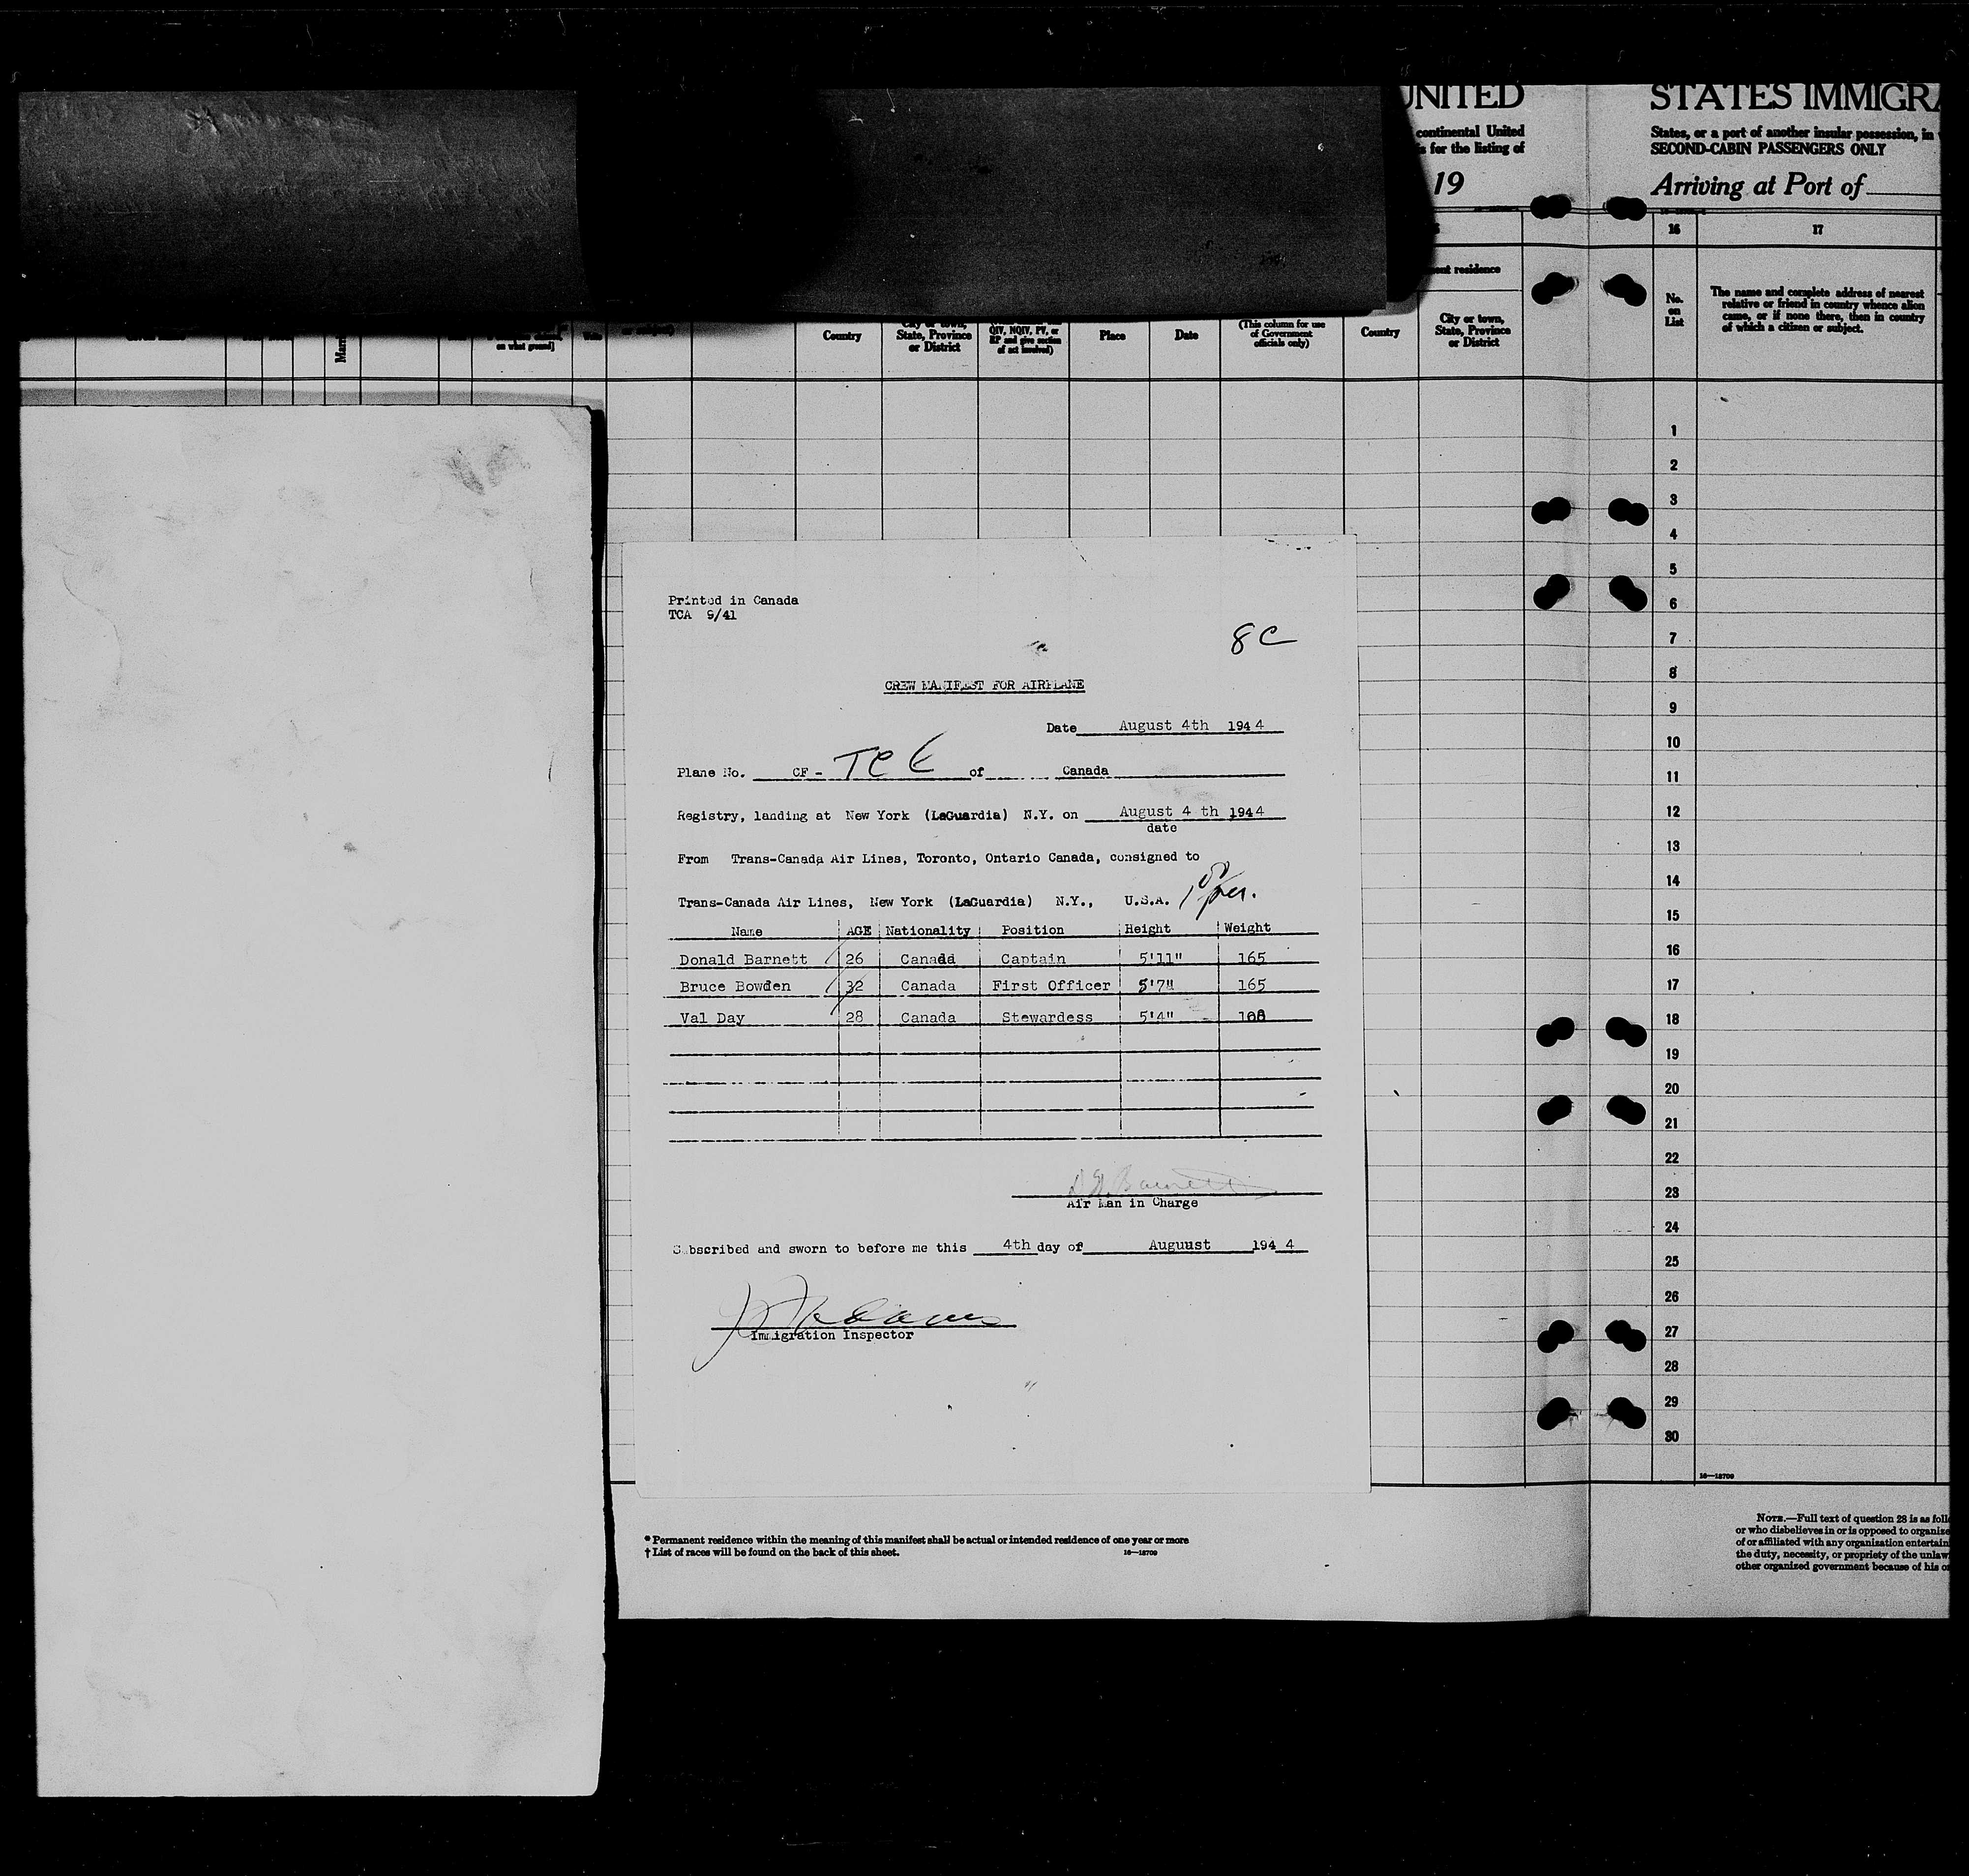 UNITED
continental United
s for the listing of
19
STATES IMMIGRA
States, or a port of another insular possession, in
SECOND-CABIN PASSENGERS ONLY
Arriving at Port of
16 17
residence
No. on List
The name and complete address of nearest
relative or friend in country whence alien
came, or if none there, then in country
of which a citizen or subject.
on what ground]
Country
State, Province
or District
QIV, NQIV, PV, or
RP and give section
of act involved)
Place
Date
(This column for use
of Government
officials only)
Country
City or town,
State, Province
or District
Printed in Canada
TCA 9/41
8C
CREW MANIFEST FOR AIRPLANE
Date August 4th 1944
Plane No. CF- TCE of Canada
Registry, landing at New York (LaGuardia) N.Y. on August 4 th 1944
date
From Trans-Canada Air Lines, Toronto, Ontario Canada, consigned to
Trans-Canada Air Lines, New York (LaGuardia) N.Y., U.S.A.
Name AGE Nationality Position Height Weight
Donald Barnett 26 Canada Captain 5'11" 165
Bruce Bowden 32 Canada First Officer 5'7" 165
Val Day 28 Canada Stewardess 5'4" 108
Barnett
Air Man in Charge
Subscribed and sworn to before me this 4th day of Auguust 194 4
Immigration Inspector
1
2
3
4
5
6
7
8
9
10
11
12
13
14
15
16
17
18
19
20
21
22
23
24
25
26
27
28
29
30
16—18709
* Permanent residence within the meaning of this manifest shall be actual or intended residence of one year or more
† List of races will be found on the back of this sheet.
16—18709
NOTE.—Full text of question 28 is as
or who disbelieves in or is opposed to
of or affiliated with any organization
the duty, necessity, or propriety of the
other organized government because of his